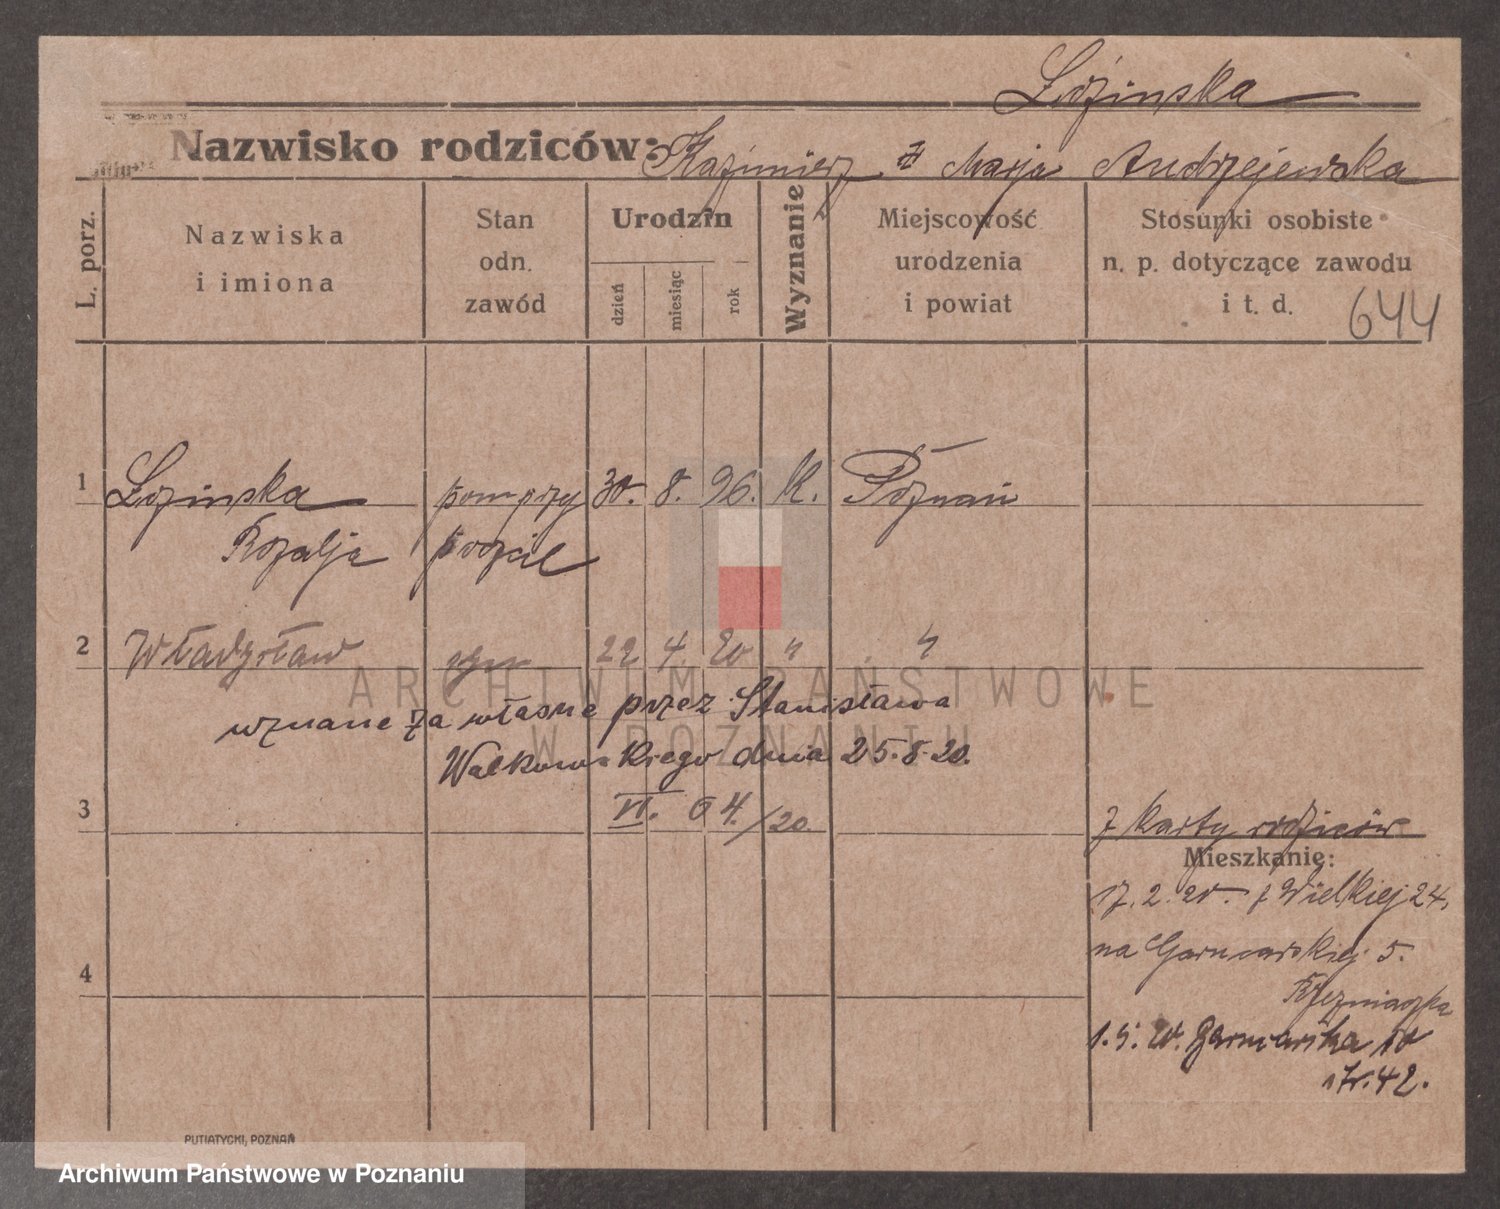 Łozinska
Nazwisko rodziców: Kazimierz z Marja Andrzejewska
L. porz.
Nazwiska
i imiona
Stan
odn.
zawód
Urodzin
dzień
miesiąc
rok
Wyznanie
Miejscowość
urodzenia
i powiat
Stosunki osobiste
n. p. dotyczące zawodu
i t. d.
644
1 Łozinska 30. 8. 96. K. Poznań
Rozalja
2 Władysław syn 22 4. 20 " "
wznane za własne przez Stanisława
Walkowskiego dnia 25.8.20.
3 VI. 64./20.
z karty rodziców
Mieszkanie:
17.2.20. z Wielkiej 24.
na Garncarskiej 5.
4
1.5. 20. Garncarska 10
42.
PUTIATYCKI, POZNAŃ
ARCHIWUM PAŃSTWOWE
W POZNANIU
Archiwum Państwowe w Poznaniu